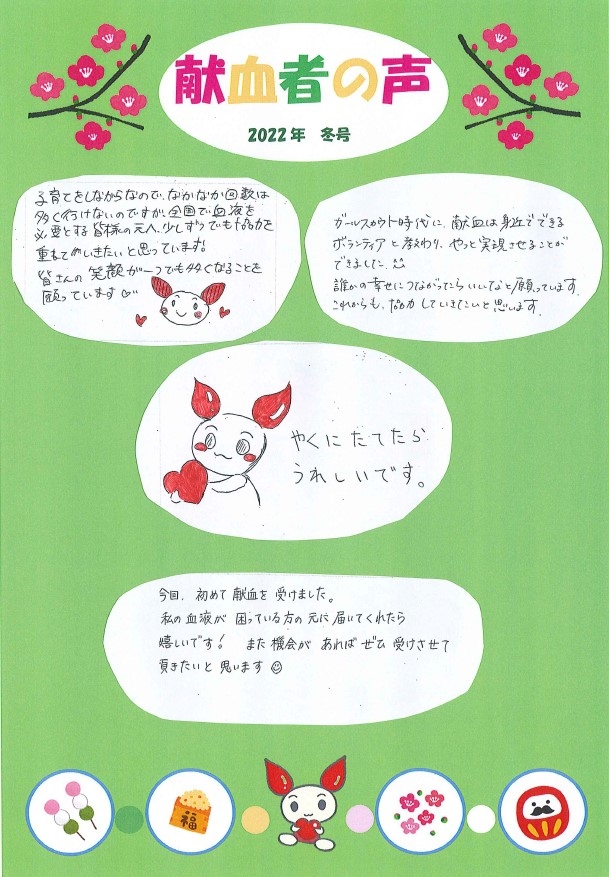 献血者の声
2022年 冬号
子育てをしながらなので、なかなか回数は
多く行けないのですが、全国で血液を
必要とする皆様の元へ、少しずつでも協力を
重ねていきたいと思っています。
皆さんの笑顔が一つでも多くなることを
願っています
ガールスカウト時代に、献血は身近でできる
ボランティアと教わり、やっと実現させることが
できました。
誰かの幸せにつながったらいいなと願っています。
これからも、協力していきたいと思います。
やくにたてたら
うれしいです。
今回、初めて献血を受けました。
私の血液が困っている方の元に届いてくれたら
嬉しいです! また機会があればぜひ受けさせて
頂きたいと思います
福